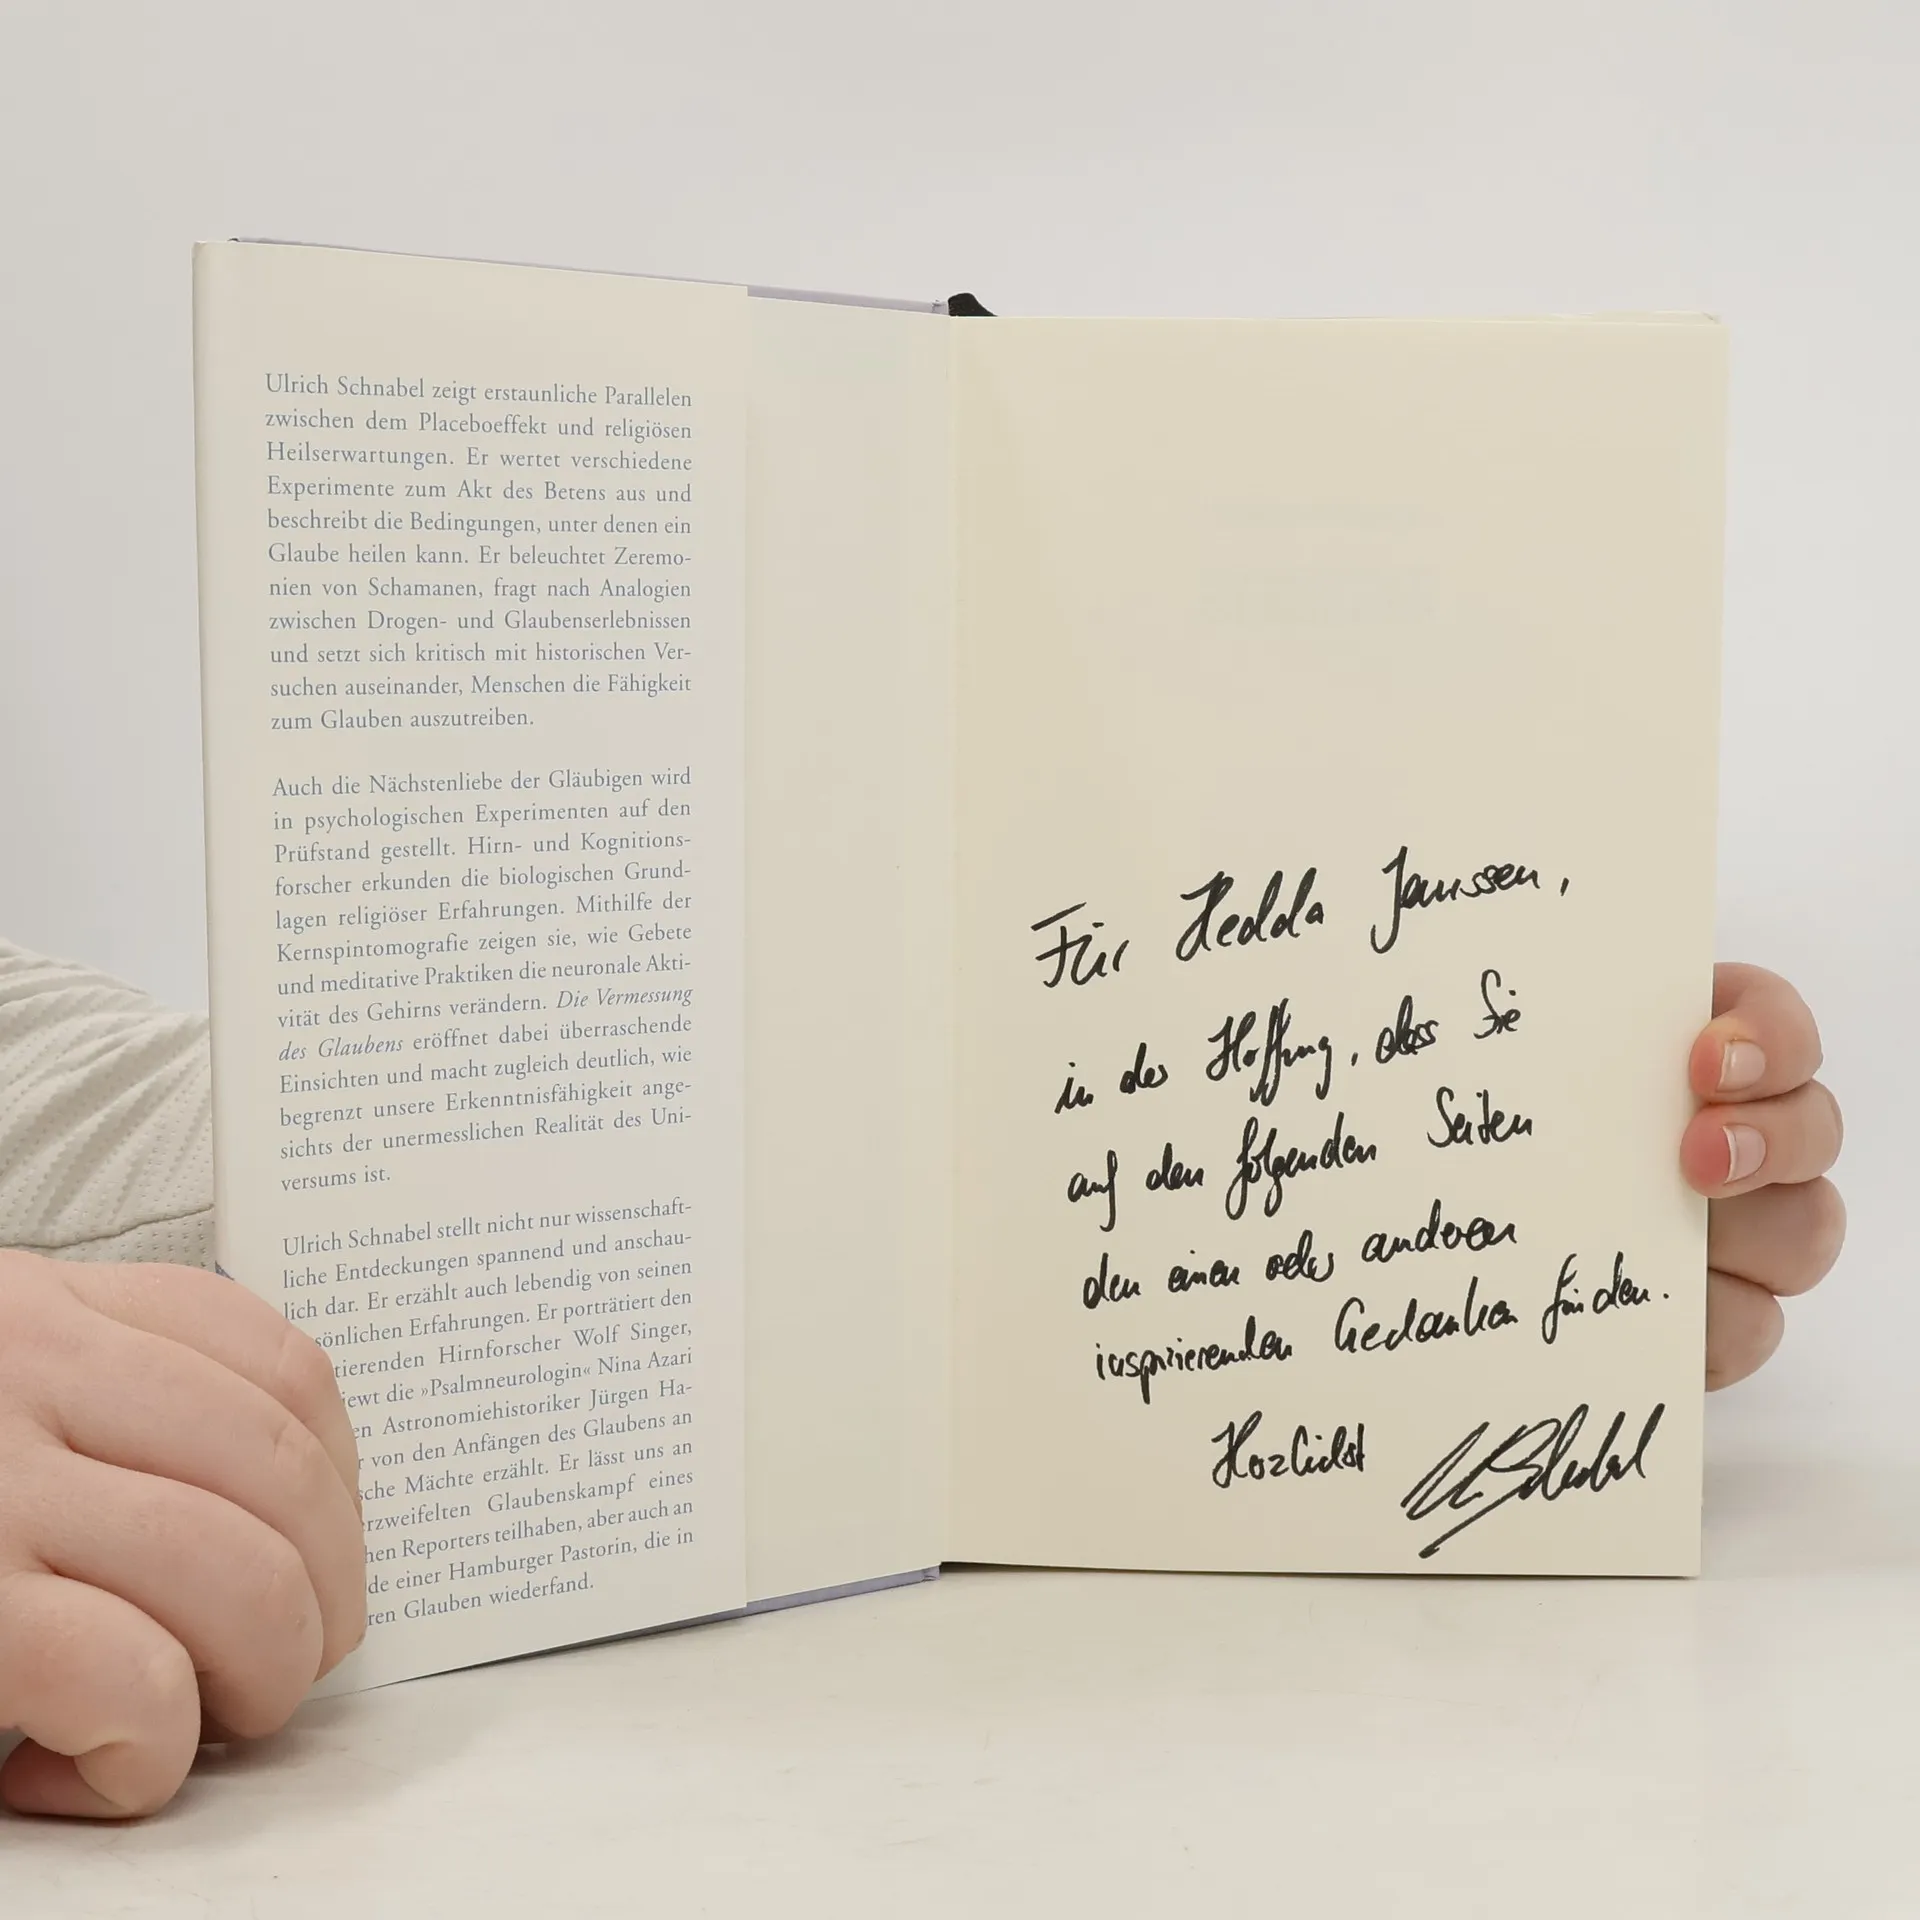 Ulrich Schnabel zeigt erstaunliche Parallelen
zwischen dem Placeboeffekt und religiösen
Heilserwartungen. Er wertet verschiedene
Experimente zum Akt des Betens aus und
beschreibt die Bedingungen, unter denen ein
Glaube heilen kann. Er beleuchtet Zeremo-
nien von Schamanen, fragt nach Analogien
zwischen Drogen- und Glaubenserlebnissen
und setzt sich kritisch mit historischen Ver-
suchen auseinander, Menschen die Fähigkeit
zum Glauben auszutreiben.
Auch die Nächstenliebe der Gläubigen wird
in psychologischen Experimenten auf den
Prüfstand gestellt. Hirn- und Kognitions-
forscher erkunden die biologischen Grund-
lagen religiöser Erfahrungen. Mithilfe der
Kernspintomografie zeigen sie, wie Gebete
und meditative Praktiken die neuronale Akti-
vität des Gehirns verändern. Die Vermessung
des Glaubens eröffnet dabei überraschende
Einsichten und macht zugleich deutlich, wie
begrenzt unsere Erkenntnisfähigkeit ange-
sichts der unermesslichen Realität des Uni-
versums ist.
Ulrich Schnabel stellt nicht nur wissenschaft-
liche Entdeckungen spannend und anschau-
lich dar. Er erzählt auch lebendig von seinen
sönlichen Erfahrungen. Er porträtiert den
tierenden Hirnforscher Wolf Singer,
iewt die »Psalmneurologin« Nina Azari
en Astronomiehistoriker Jürgen Ha-
r von den Anfängen des Glaubens an
sche Mächte erzählt. Er lässt uns an
rzweifelten Glaubenskampf eines
hen Reporters teilhaben, aber auch an
de einer Hamburger Pastorin, die in
ren Glauben wiederfand.
Für Hedda Janssen,
in der Hoffnung, dass Sie
auf den folgenden Seiten
den einen oder anderen
inspirierenden Gedanken finden.
Herzlichst